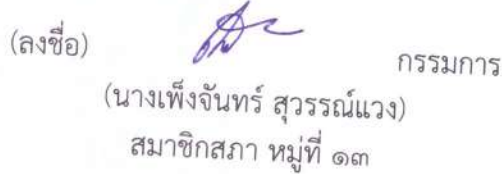 (ลงชื่อ) กรรมการ
(นางเพ็งจันทร์ สุวรรณ์แวง)
สมาชิกสภา หมู่ที่ ๑๓